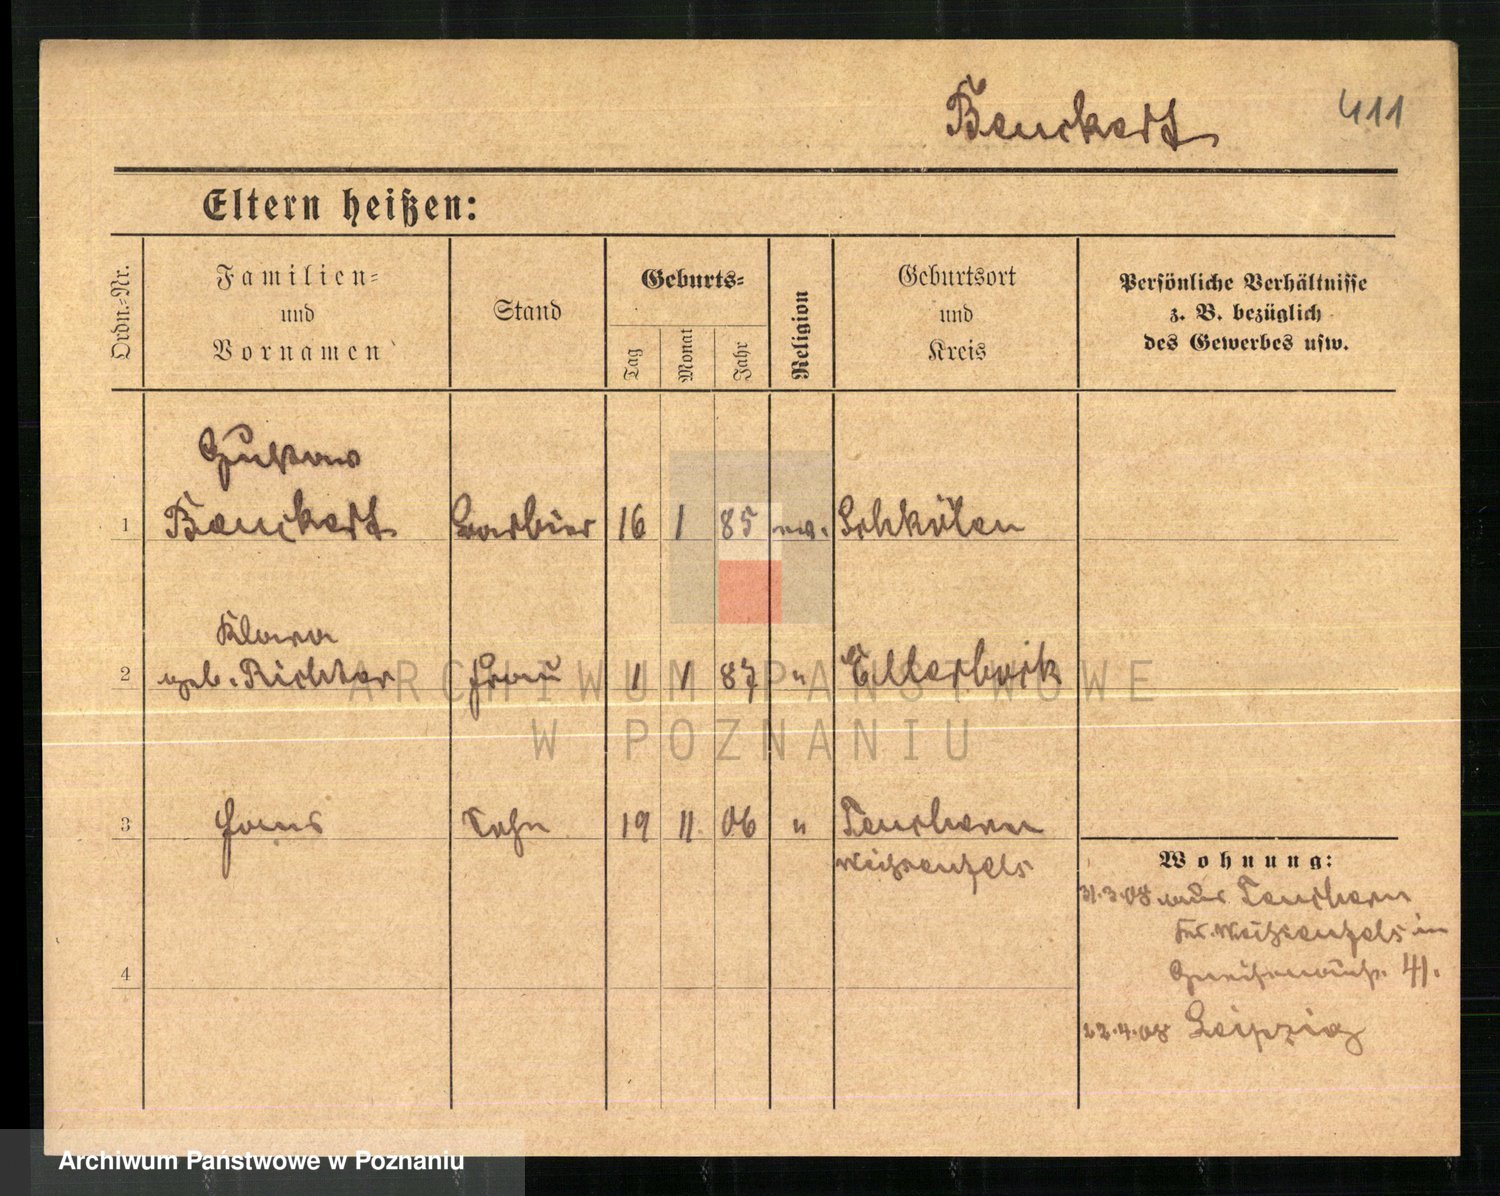 Benckert
411
Eltern heißen:
Ordn.-Nr.
Familien-
und
Vornamen
Stand
Geburts-
Tag
Monat
Jahr
Religion
Geburtsort
und
Kreis
Persönliche Verhältnisse
z. B. bezüglich
des Gewerbes usw.
Gustav
1 Benckert Barbier 16 1 85 ev. Schkölen
Klara
2 geb. Richter Frau 1 1 87 " Ellerbeck
3 Hans Sohn 19 11. 06 " Teuchern
Weißenfels
4
Wohnung:
31.3.08 aus Teuchern
Weißenfels in
Gneisenaustr. 41.
22.4.08 Leipzig
ARCHIWUM PAŃSTWOWE
W POZNANIU
Archiwum Państwowe w Poznaniu